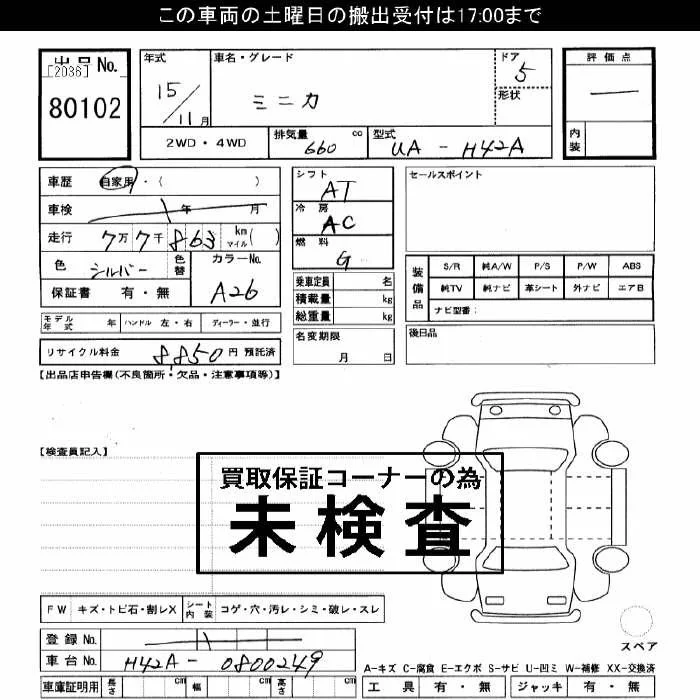 この車両の土曜日の搬出受付は17:00まで
出品 No.
[2036]
80102
年式
15/11月
車名・グレード
ミニカ
ドア
5
形状
評価点
—
内装
2WD・4WD
排気量 660 cc
型式 UA-H42A
車歴 自家用・( )
車検 年 月
走行 7万7千863 km マイル( )
色 シルバー 色替
カラーNo. A26
保証書 有・無
モデル年式 年 ハンドル 左・右 ディーラー・並行
リサイクル料金 8,850円 預託済
シフト
AT
冷房
AC
燃料
G
乗車定員 名
積載量 kg
総重量 kg
名変期限
月 日
セールスポイント
装備品
S/R 純A/W P/S P/W ABS
純TV 純ナビ 革シート 外ナビ エアB
ナビ型番:
後日品
【出品店申告欄(不良箇所・欠品・注意事項等)】
【検査員記入】
買取保証コーナーの為
未検査
FW キズ・トビ石・割レX シート内装 コゲ・穴・汚レ・シミ・破レ・スレ
登録 No.
車台 No. H42A-0800249
車庫証明用 長さ cm 幅 cm 高さ cm
スペア
A-キズ C-腐食 E-エクボ S-サビ U-凹ミ W-補修 XX-交換済
工具 有・無 ジャッキ 有・無